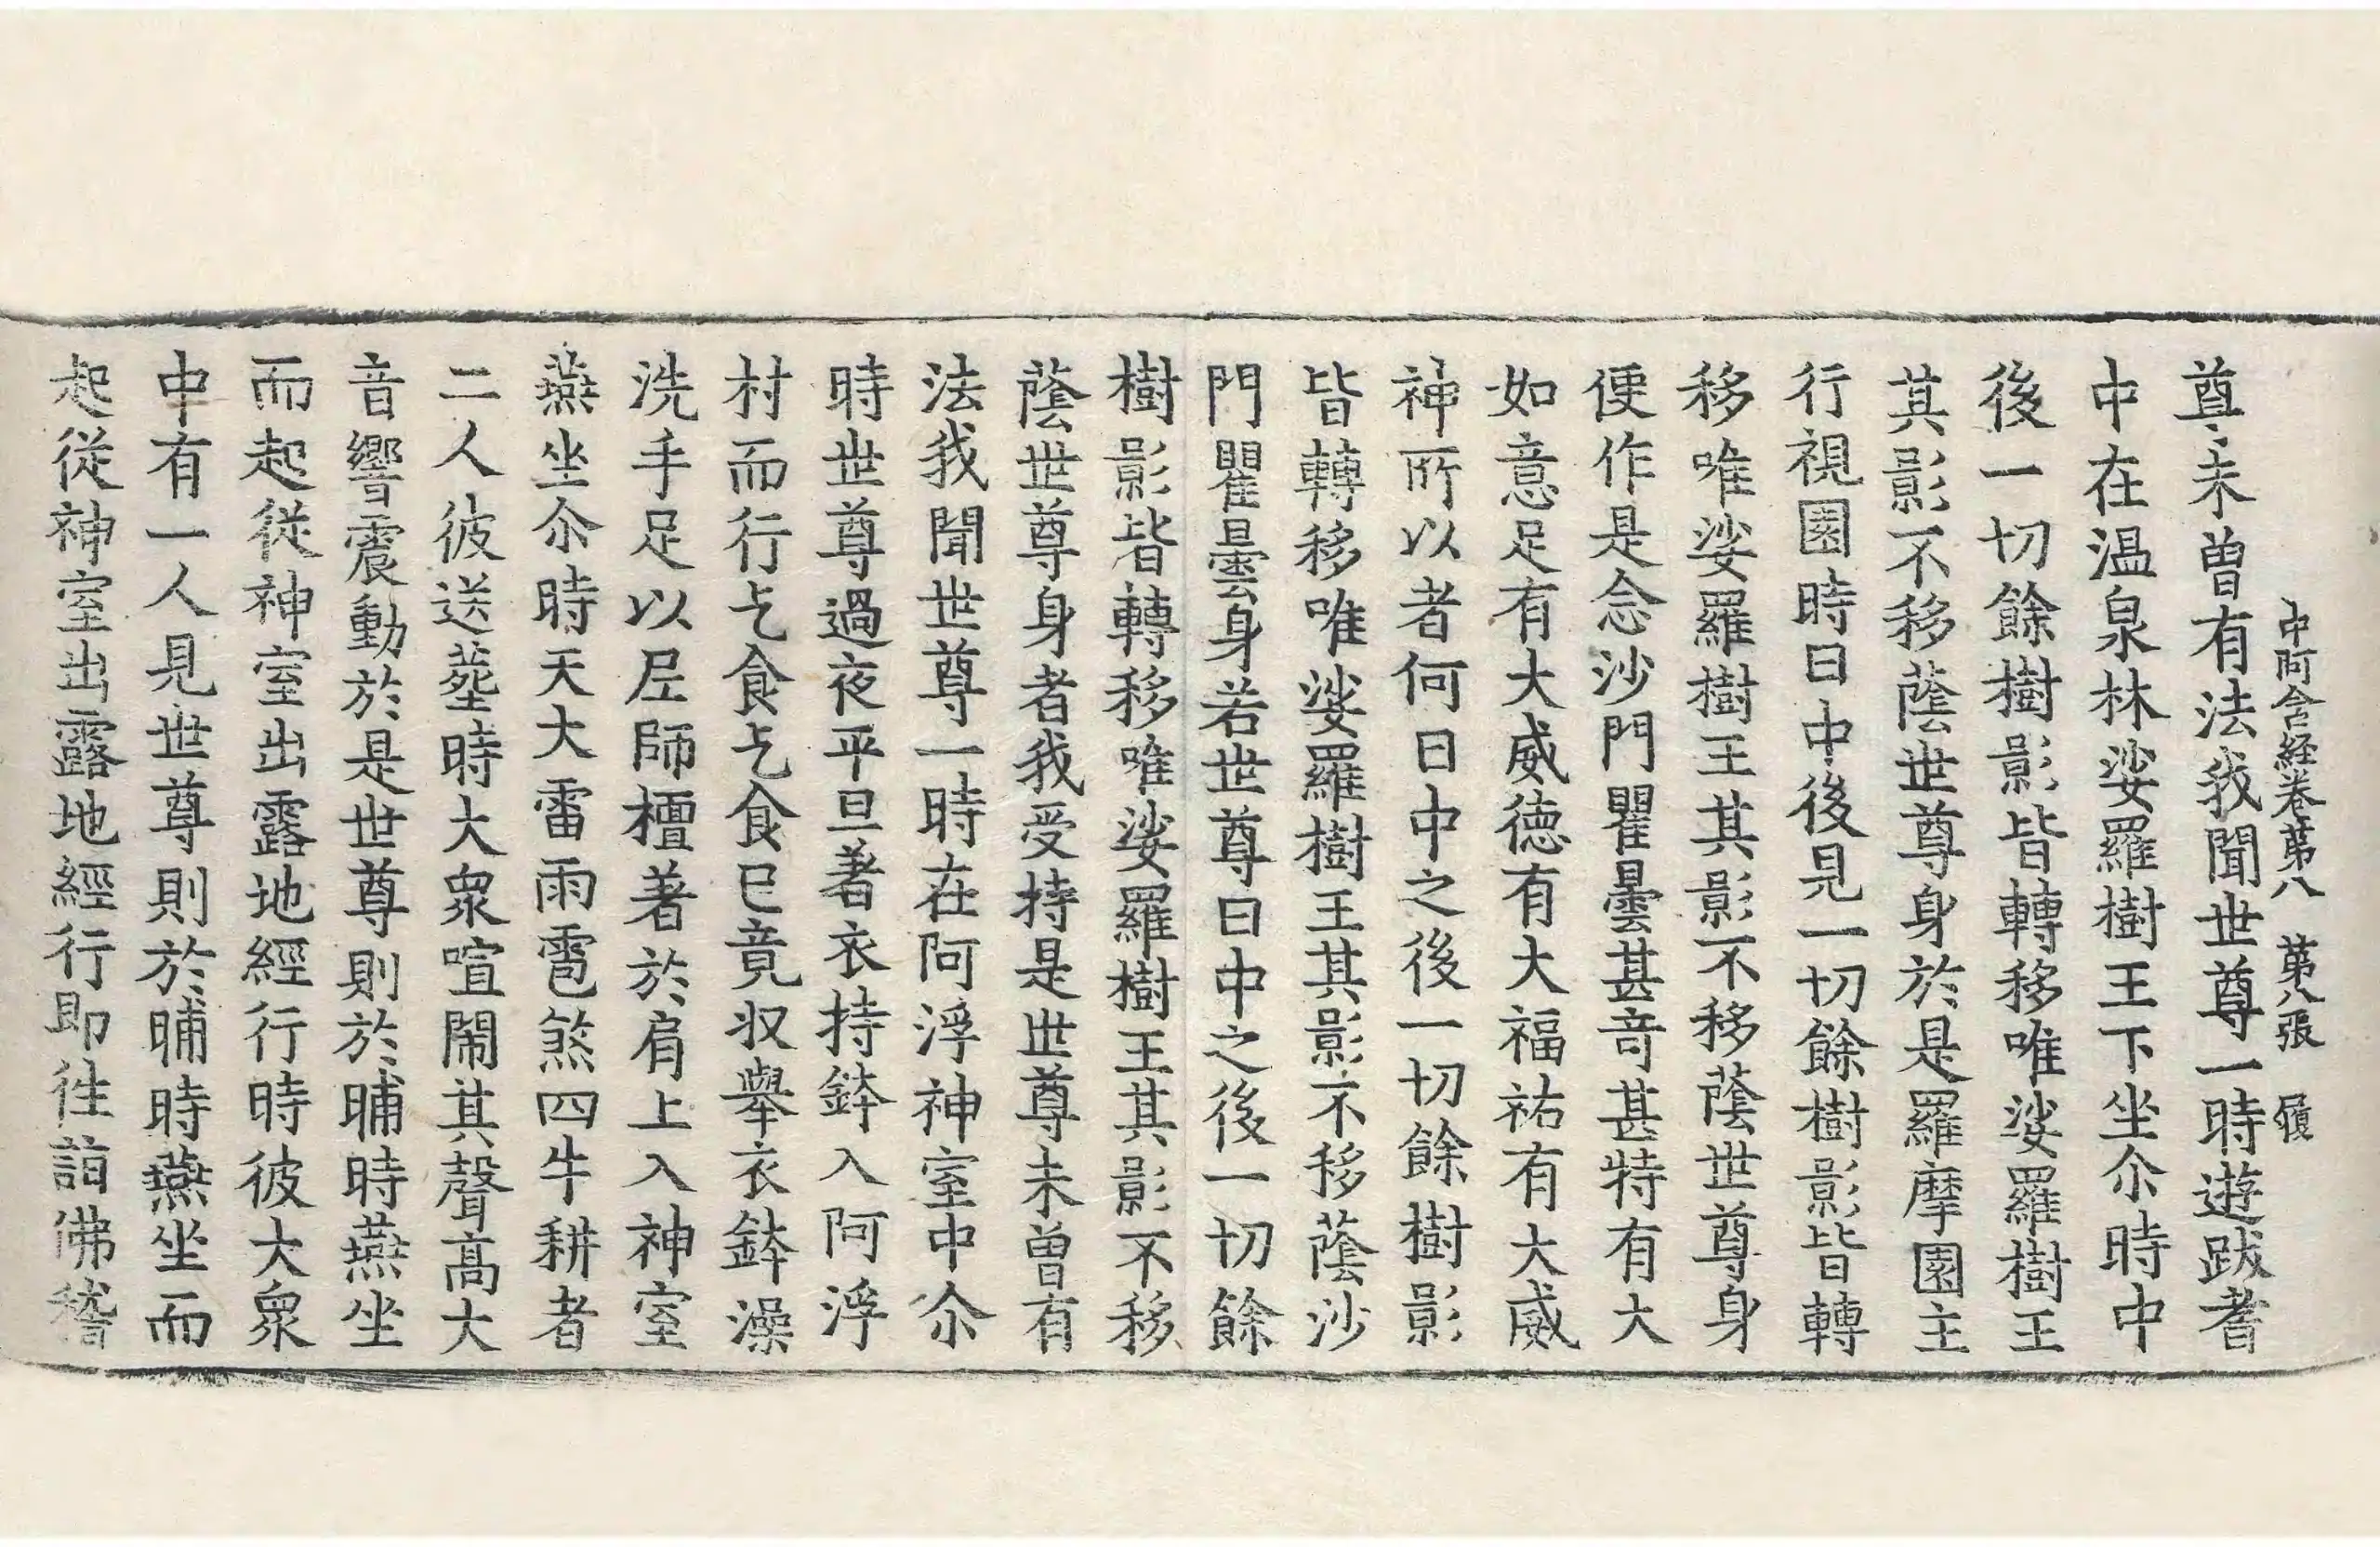 中阿含経巻第八　第八張　履
尊未曽有法我聞世尊一時遊跋耆
中在温泉林娑羅樹王下坐尒時中
後一切餘樹影皆轉移唯娑羅樹王
其影不移蔭世尊身於是羅摩園主
行視園時日中後見一切餘樹影皆轉
移唯娑羅樹王其影不移蔭世尊身
便作是念沙門瞿曇甚竒甚特有大
如意足有大威徳有大福祐有大威
神所以者何日中之後一切餘樹影
皆轉移唯娑羅樹王其影不移蔭沙
門瞿曇身若世尊日中之後一切餘
樹影皆轉移唯娑羅樹王其影不移
蔭世尊身者我受持是世尊未曽有
法我聞世尊一時在阿浮神室中尒
時世尊過夜平旦著衣持鉢入阿浮
村而行乞食乞食已竟収舉衣鉢澡
洗手足以尼師檀著於肩上入神室
燕坐尒時天大雷雨雹煞四牛耕者
二人彼送葬時大衆喧閙其聲髙大
音響震動於是世尊則於晡時燕坐
而起從神室出露地經行時彼大衆
中有一人見世尊則於晡時燕坐而
起從神室出露地經行即往詣佛稽